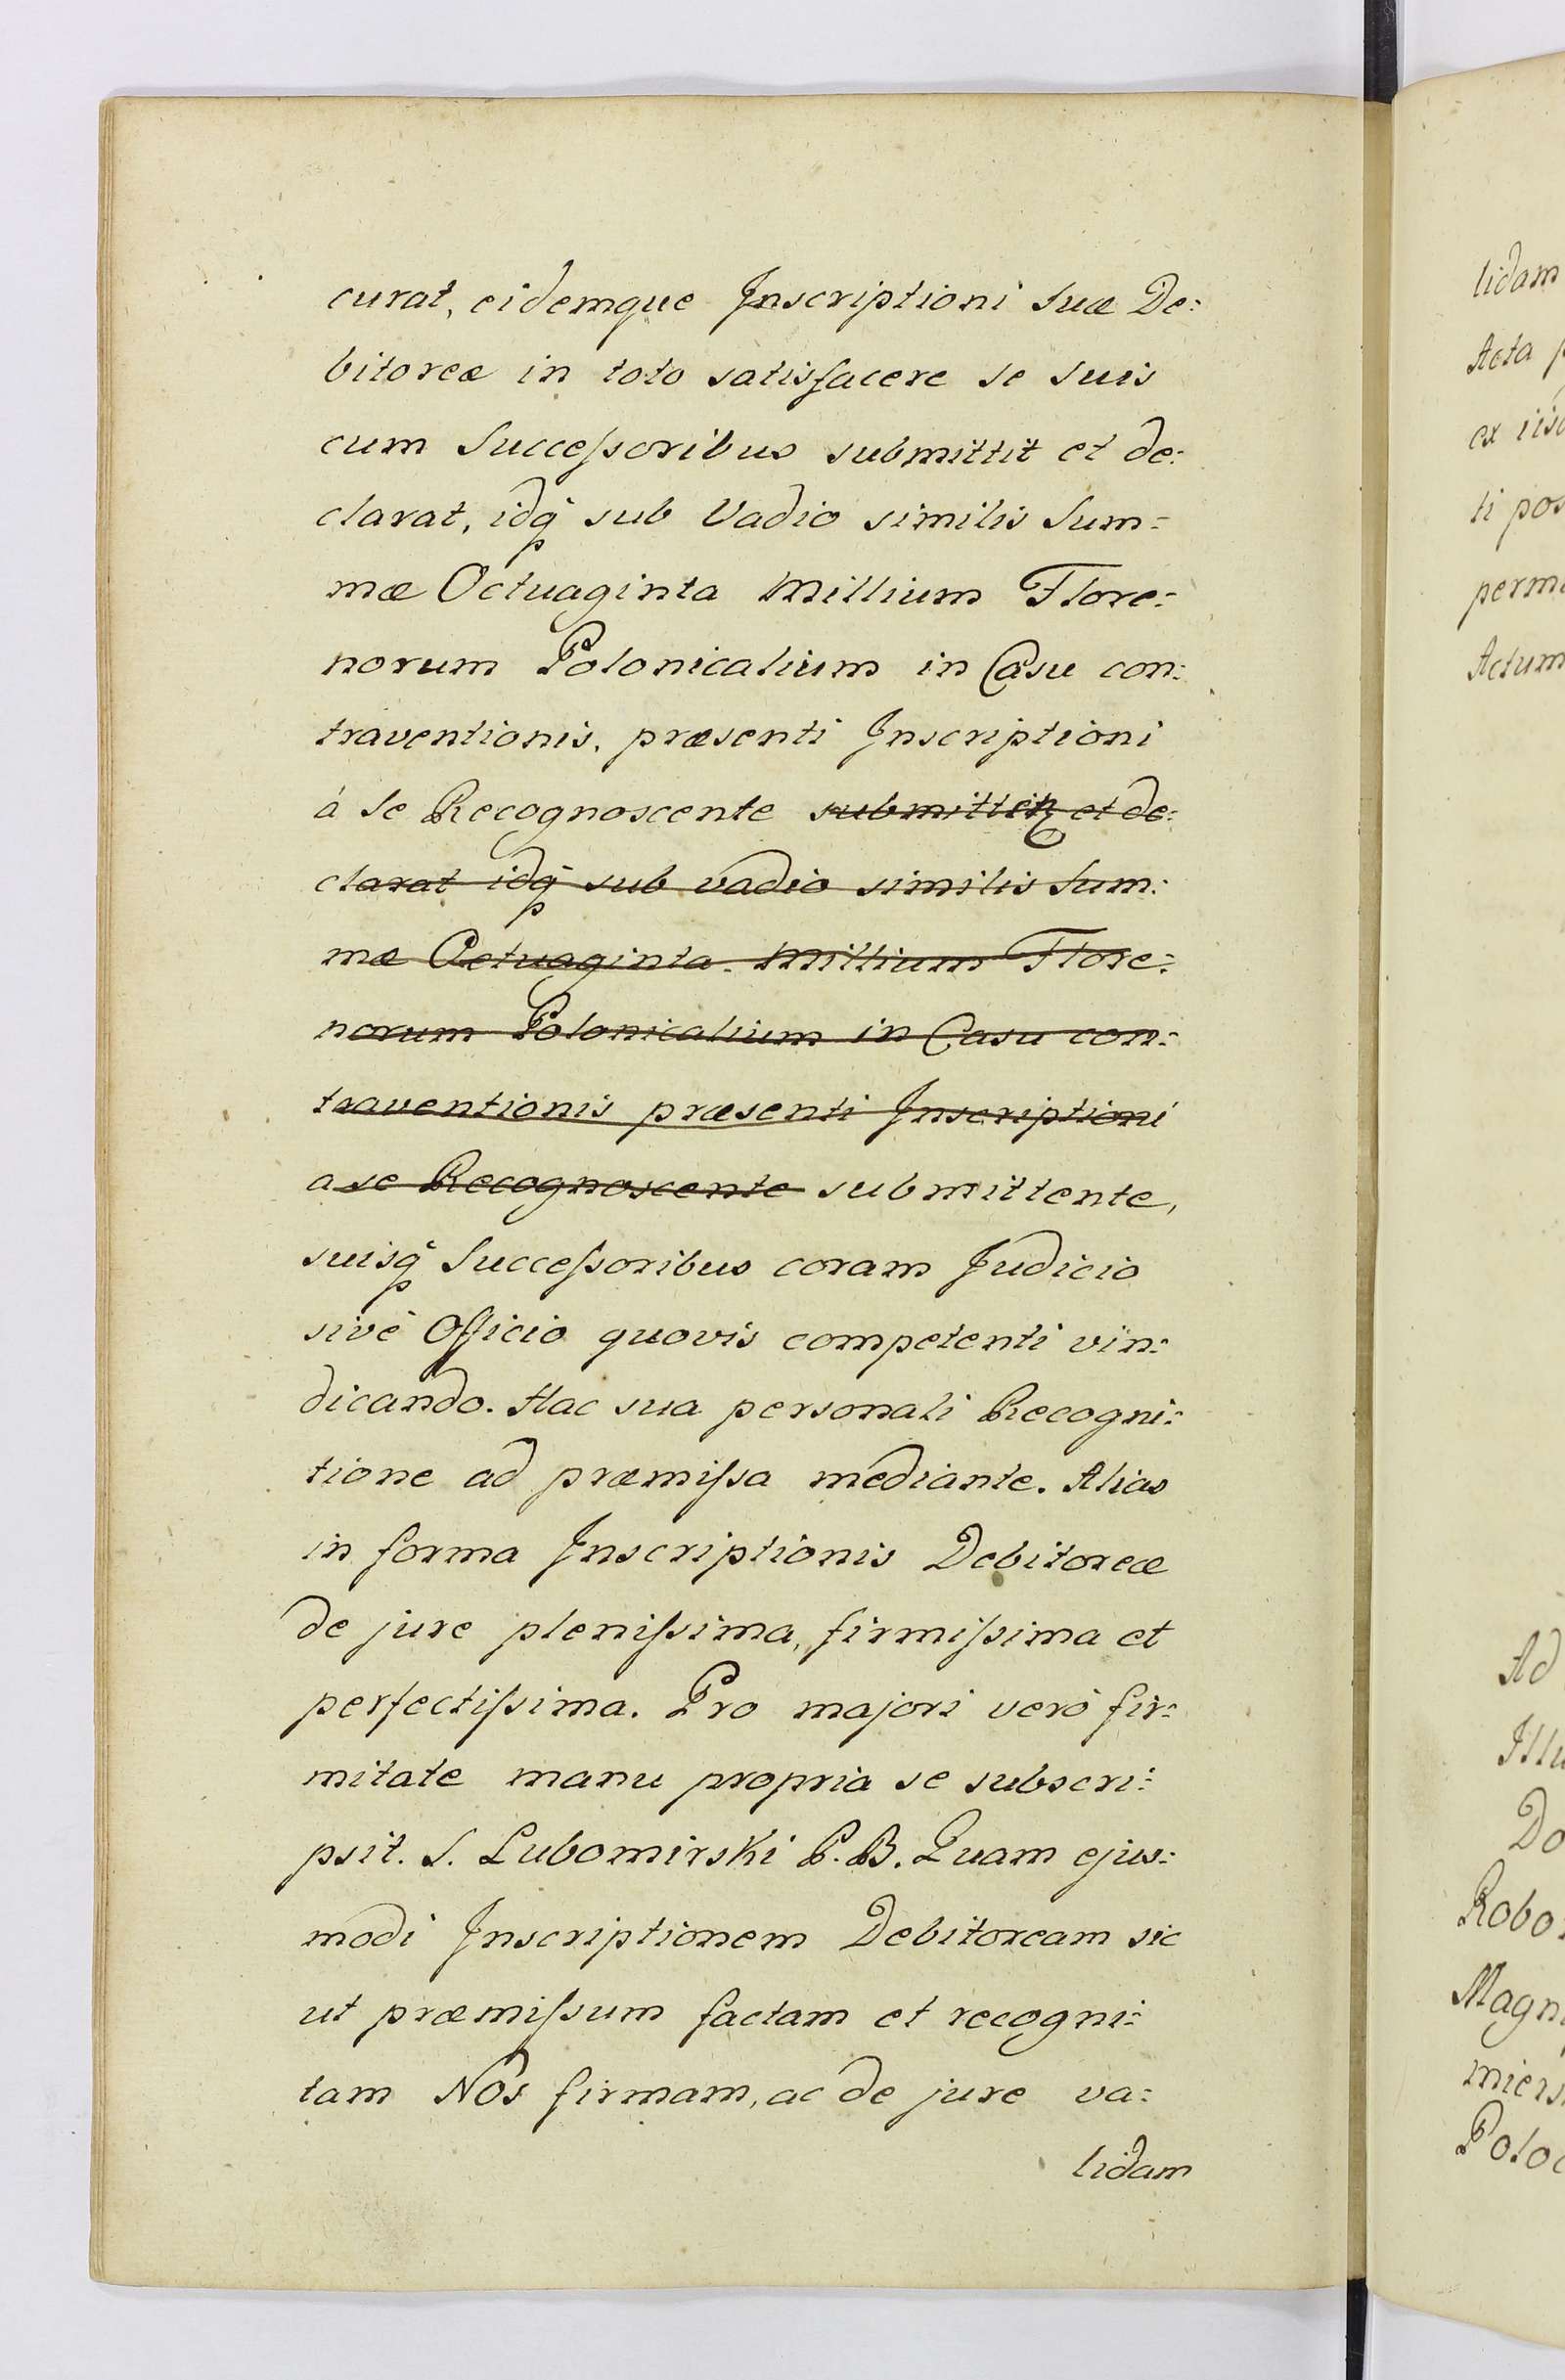 curat, eidemque Inscriptioni suæ De:
bitoreæ in toto satisfacere se suis
cum Successoribus submittit et de:
clarat, idq́ sub Vadio similis Sum=
mæ Octuaginta Millium Flore:
norum Polonicalium in Casu con:
traventionis, præsenti Inscriptioni
à se Recognoscente submittit et de:
clarat idq́ sub vadio similis Sum:
mæ Octuaginta Millium Flore:
norum Polonicalium in Casu con:
traventionis præsenti Inscriptioni
a se Recognoscente submittente,
suisq́ Successoribus coram Judicio
sivè Officio quovis competenti vin:
dicando. Hac sua personali Recogni:
tione ad præmissa mediante. Alias
in forma Inscriptionis Debitoreæ
de jure plenissima, firmissima et
perfectissima. Pro majori verò fir:
mitate manu propria se subscri:
psit. S. Lubomirski P. B. Quam ejus:
modi Inscriptionem Debitoream sic
ut præmissum factam et recogni:
tam Nos firmam, ac de jure va:
lidam
lidam
Acta
ex
ti pos
perm
Actum
Ad
Illu
Do
Robo
Magn
miers
Poloc